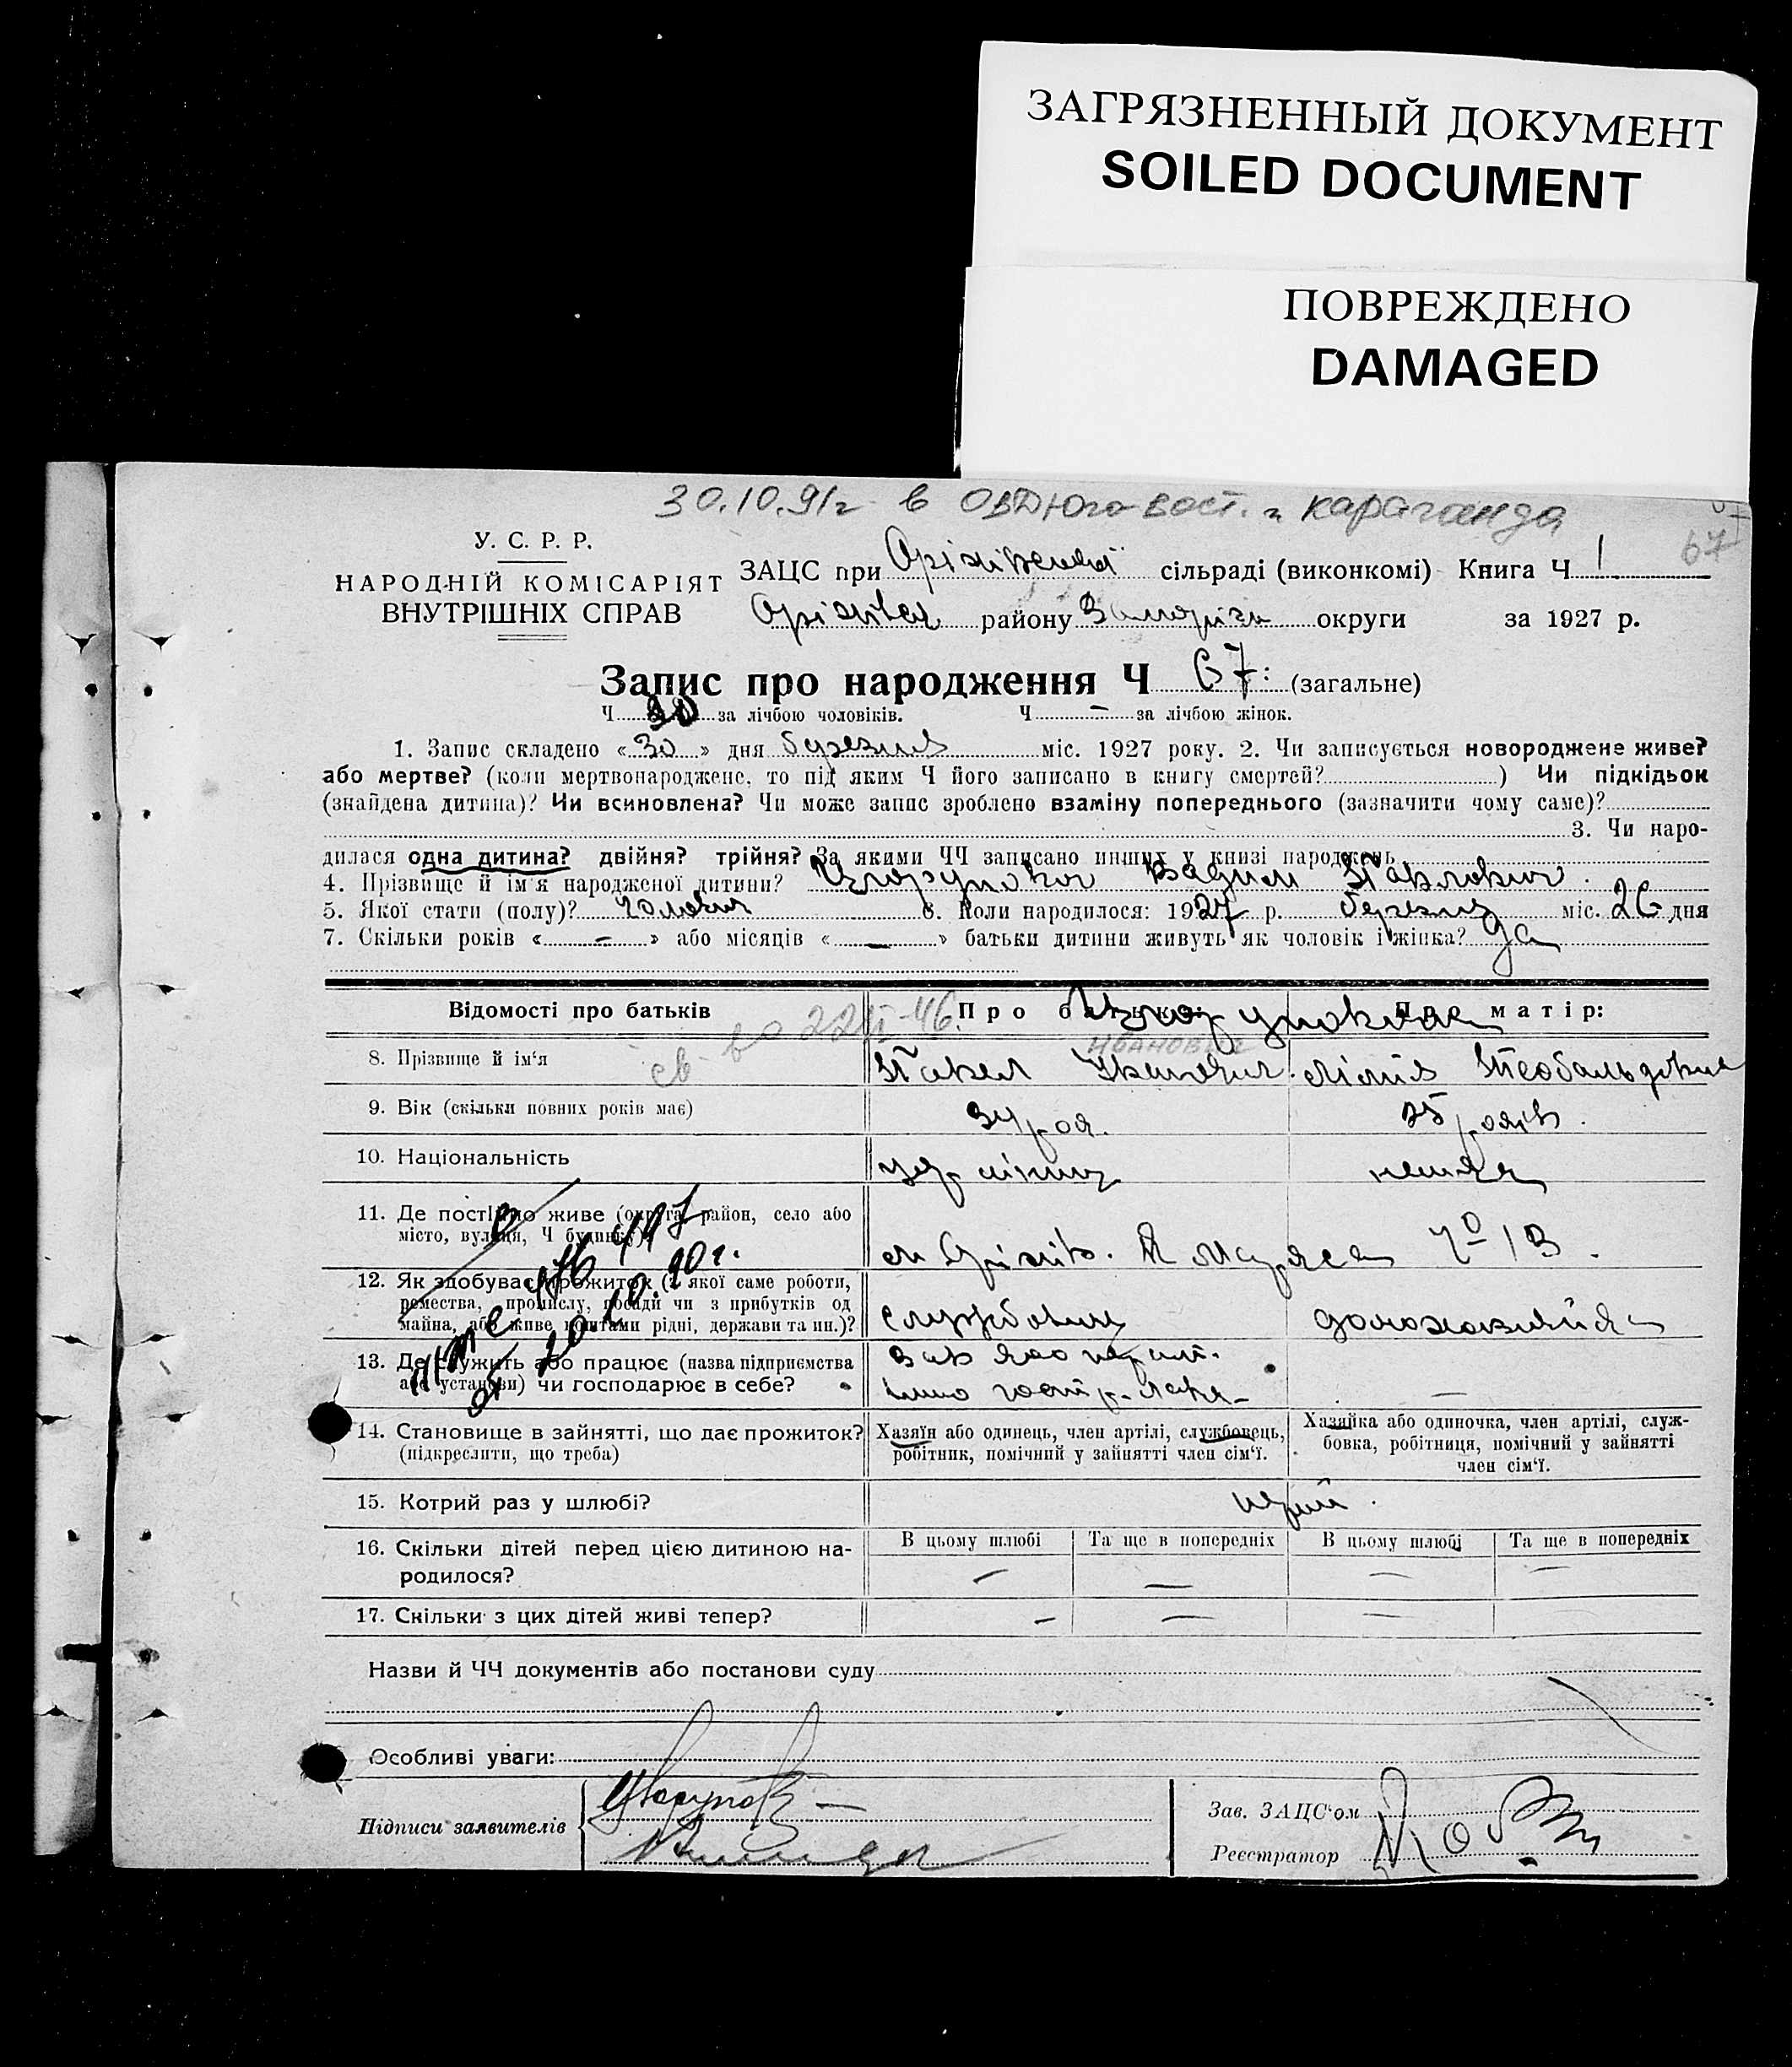 ЗАГРЯЗНЕННЫЙ ДОКУМЕНТ
SOILED DOCUMENT
ПОВРЕЖДЕНО
DAMAGED
30.10.91г в ОВД Юго-Вост. г. Караганда
67
У. С. Р. Р.
НАРОДНІЙ КОМІСАРІЯТ
ВНУТРІШНІХ СПРАВ
ЗАЦС при Оріхівський сільраді (виконкомі) Книга Ч 1
Оріхівск району Запоріжж округи за 1927 р.
Запис про народження Ч 67: (загальне)
Ч 30 за лічбою чоловіків. Ч — за лічбою жінок.
1. Запис складено «30» дня березня міс. 1927 року. 2. Чи записується новороджене живе?
або мертве? (коли мертвонароджене, то під яким Ч його записано в книгу смертей? ) Чи підкідьок
(знайдена дитина)? Чи всиновлена? Чи може запис зроблено взаміну попереднього (зазначити чому саме)?
3. Чи наро-
дилася одна дитина? двійня? трійня? За якими ЧЧ записано инших у книзі народжень
4. Прізвище й ім'я народженої дитини? Вадим Павлович.
5. Якої стати (полу)? чоловіч 6. Коли народилося: 1927 р. березня міс. 26 дня
7. Скільки років « — » або місяців « — » батьки дитини живуть як чоловік і жінка? да
Відомості про батьків Про батька: Про матір:
св-во 22/II-46.
Иванович
8. Прізвище й ім'я Павел Іванович Лілія Теобальдівна
9. Вік (скільки повних років має) 34 рок. 25 років.
10. Національність українец немка
11. Де постійно живе (округа, район, село або
місто, вулиця, Ч будинку)?
м Оріхів. К Маркса № 13.
12. Як здобуває прожиток (з якої саме роботи,
ремества, промислу, посади чи з прибутків од
майна, або живе коштами рідні, держави та ин.)?
службовец домохазяйка
20.10.90г.
13. Де служить або працює (назва підприємства
або установи) чи господарює в себе?
—
14. Становище в зайнятті, що дає прожиток?
(підкреслити, що треба)
Хазяїн або одинець, член артілі, службовець,
робітник, помічний у зайнятті член сім'ї.
Хазяйка або одиночка, член артілі, служ-
бовка, робітниця, помічний у зайнятті
член сім'ї.
15. Котрий раз у шлюбі? перший.
16. Скільки дітей перед цією дитиною на-
родилося?
В цьому шлюбі Та ще в попередніх В цьому шлюбі Та ще в попередніх
— — — —
17. Скільки з цих дітей живі тепер? — — —
Назви й ЧЧ документів або постанови суду
Особливі уваги:
Підписи заявителів
Зав. ЗАЦС'ом
Реєстратор